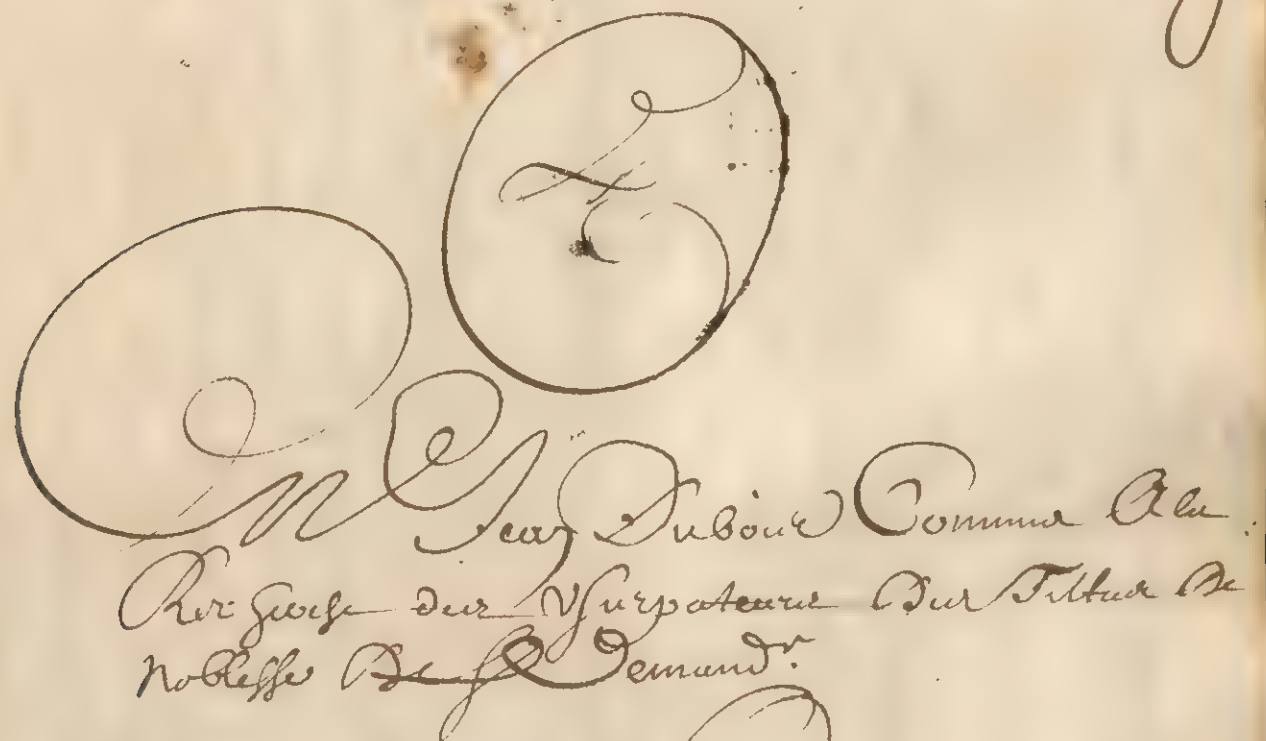 Me Jean Dubois Commis A la
Recherche des Usurpateurs Du Tiltre De
noblesse Demandr